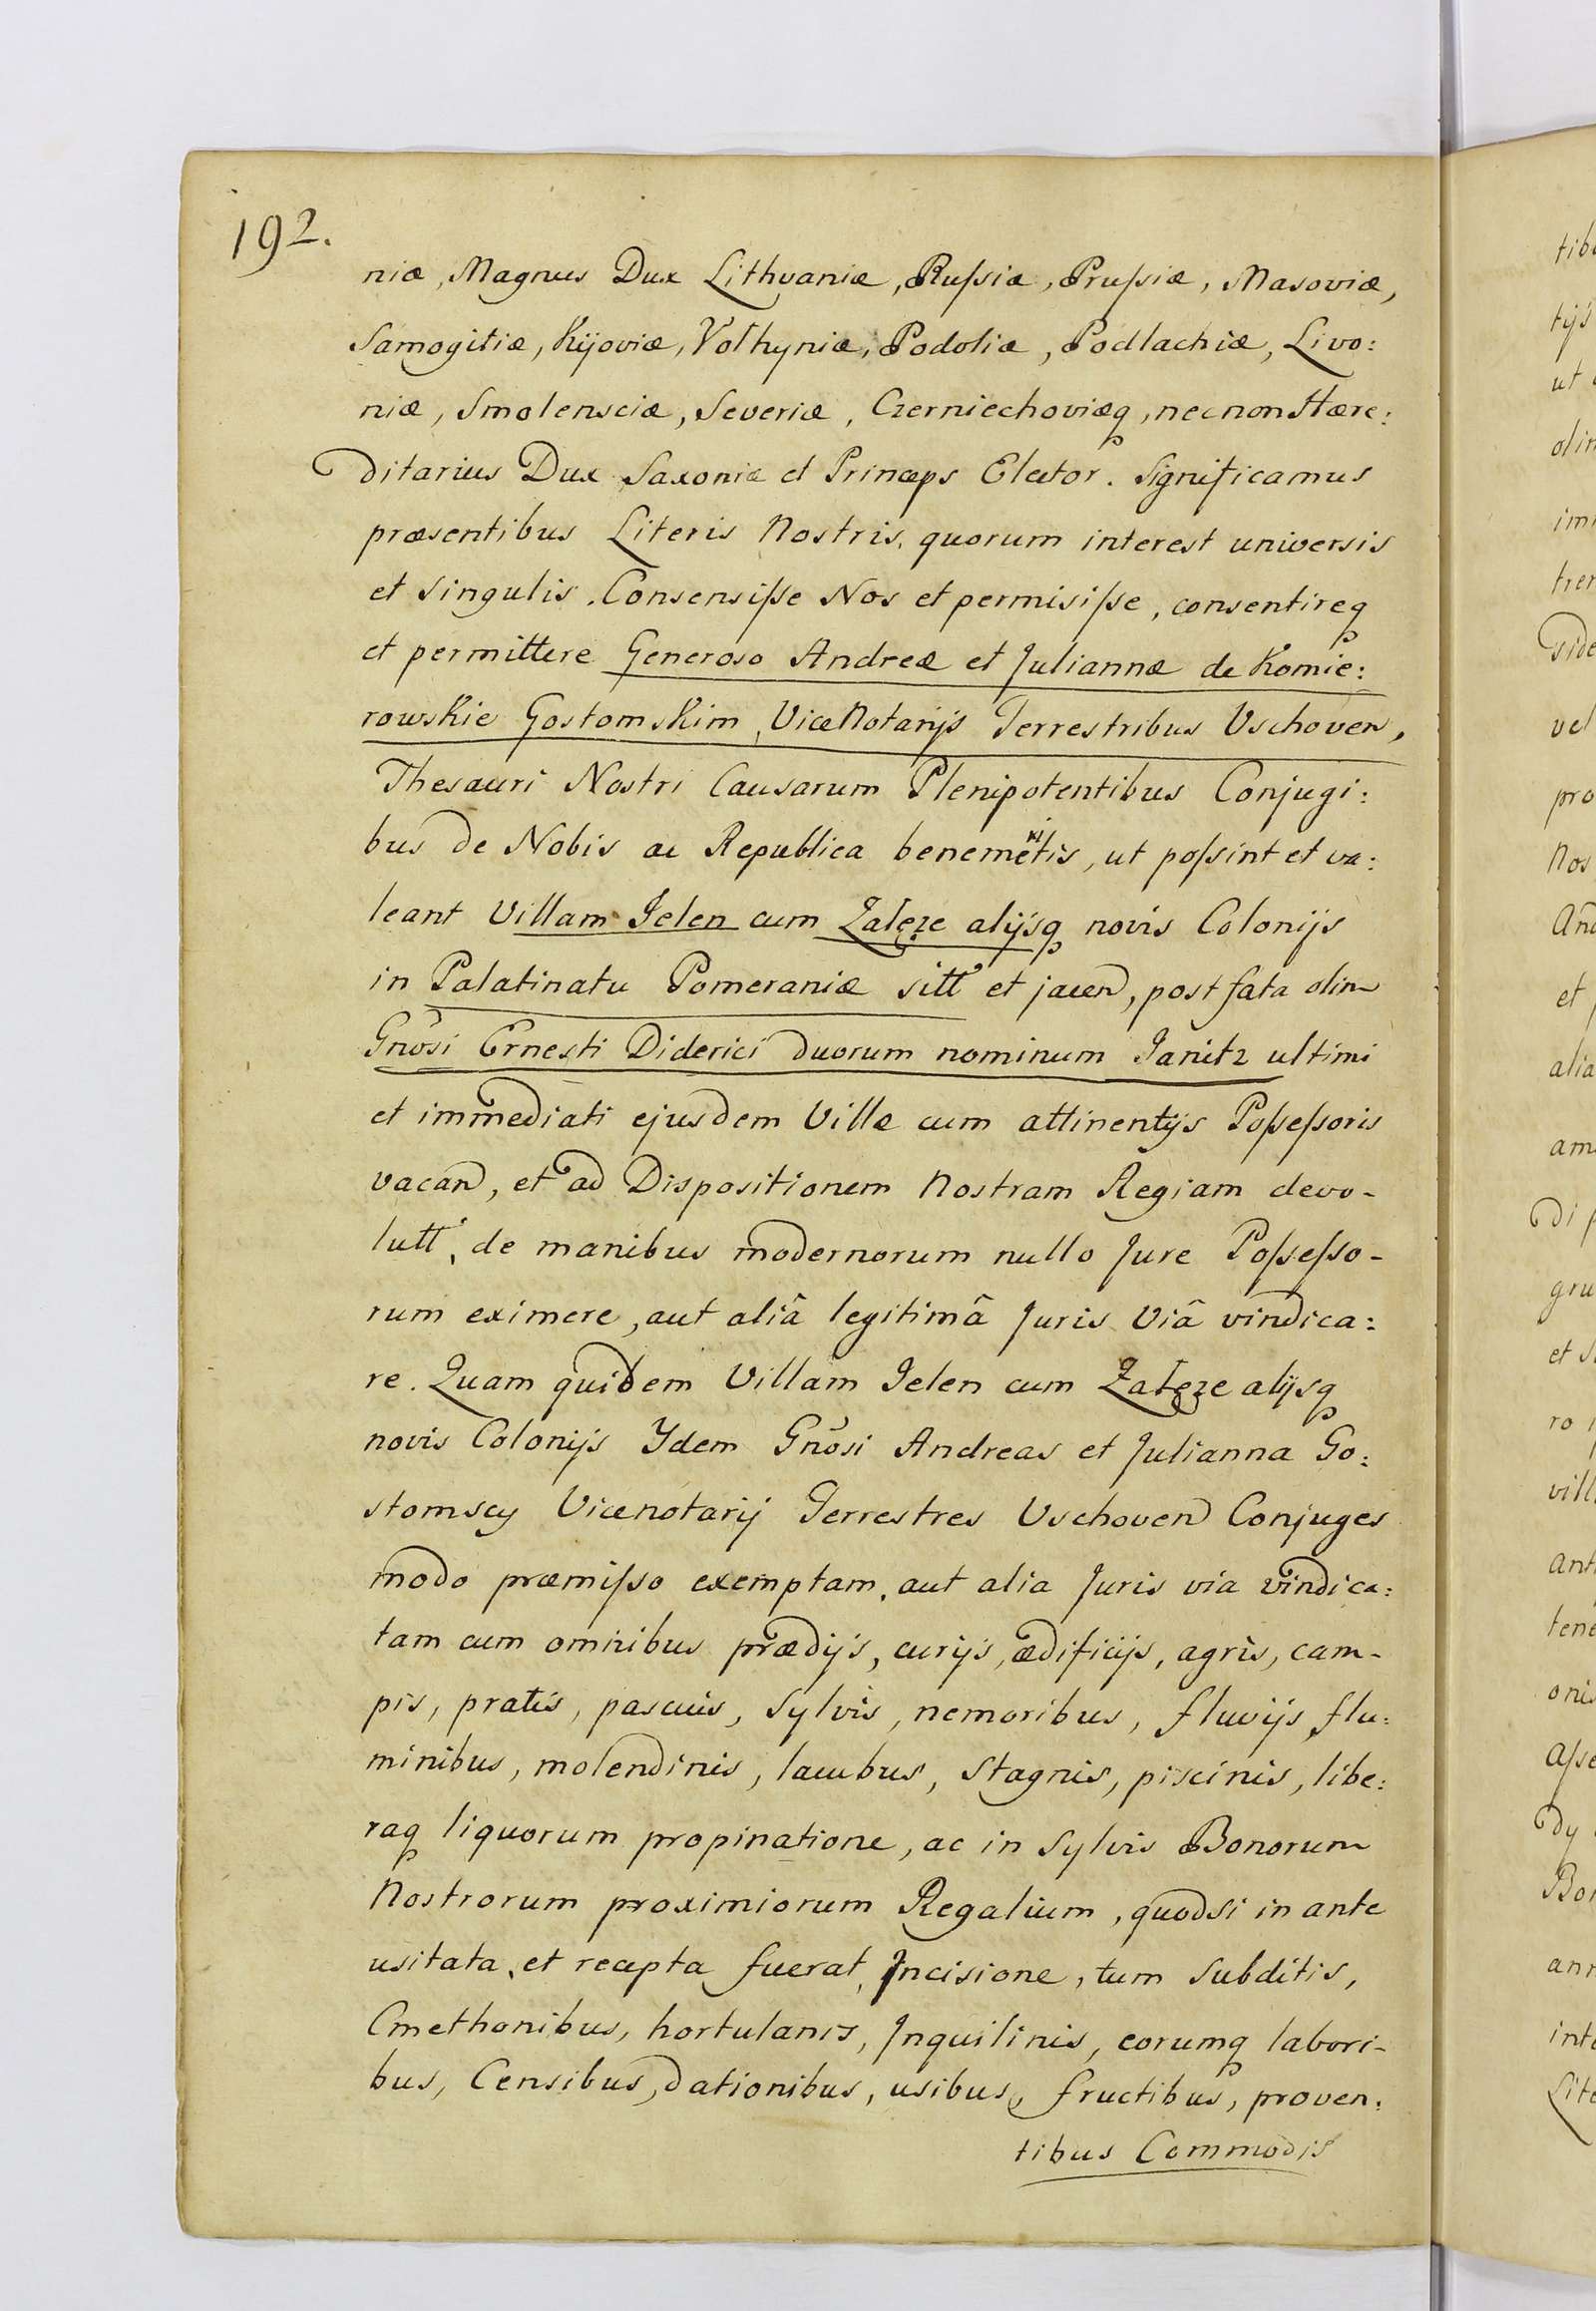 192.
niæ, Magnus Dux Lithvaniæ, Ruſsiæ, Pruſsiæ, Masoviæ,
Samogitiæ, Kijoviæ, Volhyniæ, Podoliæ, Podlachiæ, Livo:
niæ, Smolensciæ, Severiæ, Czerniechoviæq, necnon Hære:
ditarius Dux Saxoniæ et Princeps Elector. Significamus
præsentibus Literis Nostris, quorum interest universis
et singulis. Consensiſse Nos et permisiſse, consentireq
et permittere Generoso Andreæ et Juliannæ de Komie:
rowskie Gostomskim, ViceNotarijs Terrestribus Vschoven,
Thesauri Nostri Causarum Plenipotentibus Conjugi:
bus de Nobis ac Republica benemetis, ut poſsint et va:
leant Villam Jelen cum Załęze alijsq novis Colonijs
in Palatinatu Pomeraniæ sitt et jacen, post fata olim
Gnosi Ernesti Diderici duorum nominum Janitz ultimi
et immediati ejusdem Villæ cum attinentijs Poſseſsoris
vacan, et ad Dispositionem Nostram Regiam devo-
lutt, de manibus modernorum nullo Jure Poſseſso-
rum eximere, aut aliâ legitimâ Juris Viâ vindica:
re. Quam quidem Villam Jelen cum Załęze alijsq
novis Colonijs Ydem Gnosi Andreas et Julianna Go:
stomscy Vicenotarij Terrestres Vschoven Conjuges
modo præmiſso exemptam, aut alia Juris via vindica:
tam cum omnibus prædijs, curijs, ædificijs, agris, cam-
pis, pratis, pascuis, Sylvis, nemoribus, fluvijs, flu:
minibus, molendinis, lacubus, Stagnis, piscinis, libe:
raq liquorum propinatione, ac in Sylvis Bonorum
Nostrorum proximiorum Regalium, quodsi in ante
usitata, et recepta fuerat, Incisione, tum Subditis,
Cmethonibus, hortulanis, Inquilinis, eorumq labori-
bus, Censibus, dationibus, usibus, fructibus, proven:
tibus Commodis